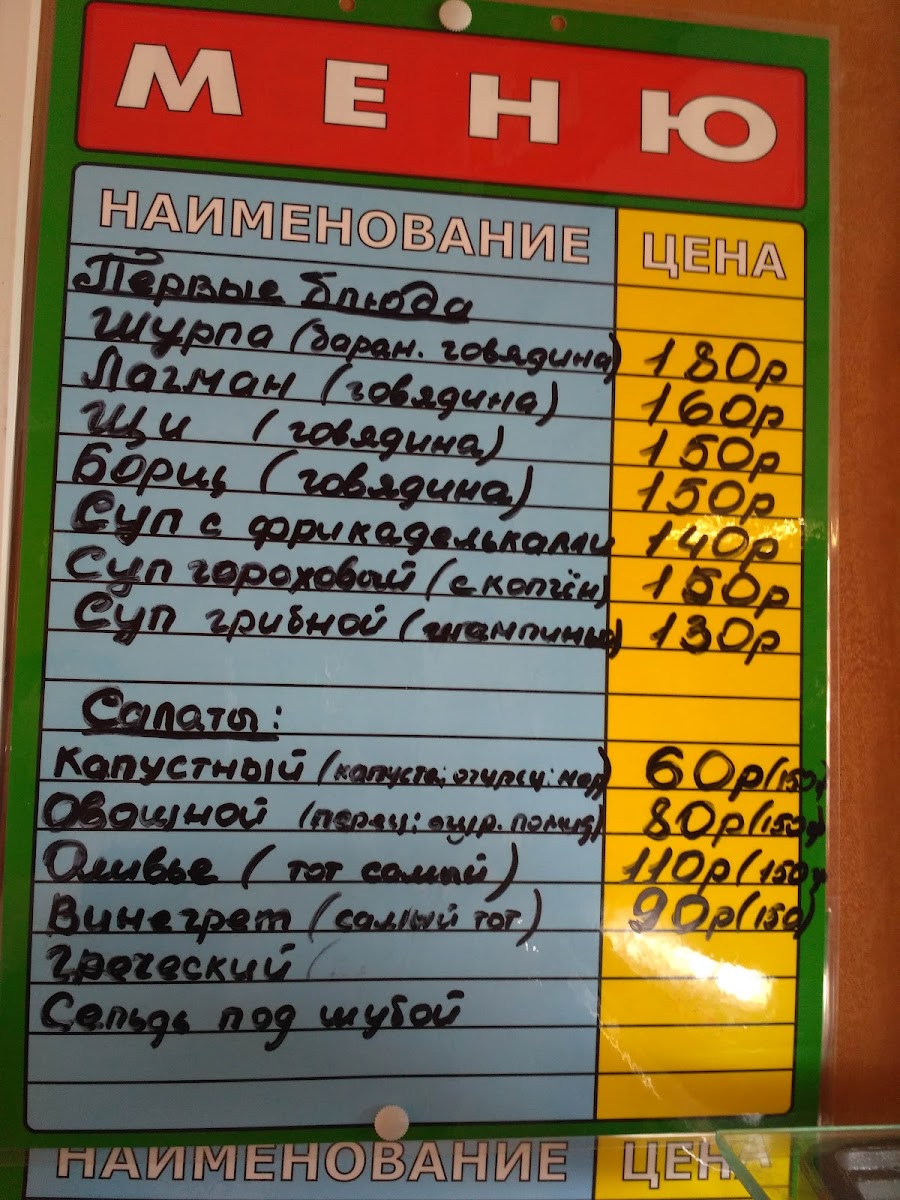 МЕНЮ
НАИМЕНОВАНИЕ ЦЕНА
Первые блюда
Шурпа (баран. говядина) 180р
Лагман (говядина) 160р
Щи (говядина) 150р
Борщ (говядина) 150р
Суп с фрикадельками 140р
Суп гороховый (с копчён) 150р
Суп грибной (шампиньо) 130р
Салаты:
Капустный (капуста; огурец; мор) 60р (150г)
Овощной (перец; огур. помид) 80р (150г)
Оливье (тот самый) 110р (150г)
Винегрет (самый тот) 90р (150)
Греческий (
Сельдь под шубой
НАИМЕНОВАНИЕ ЦЕНА